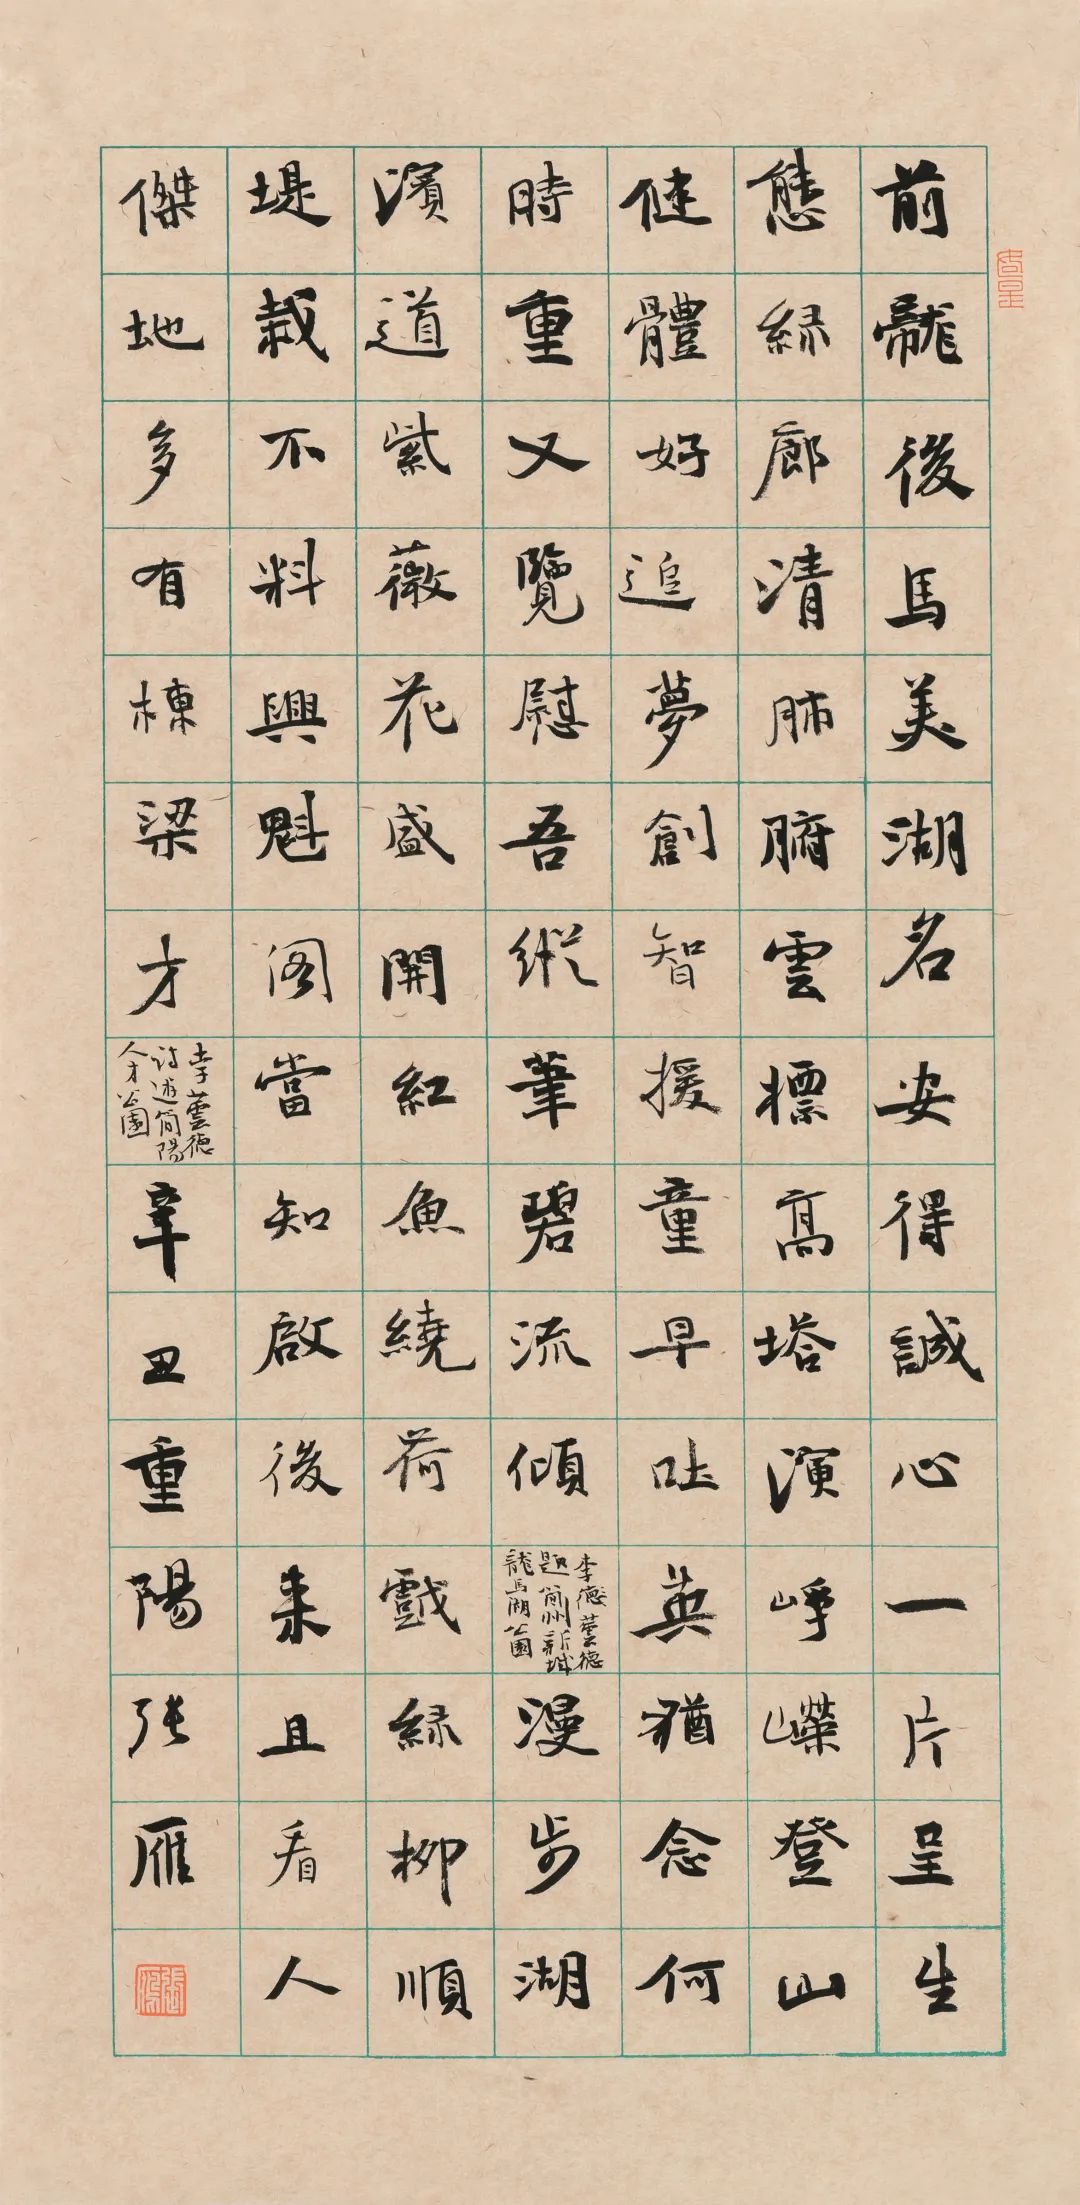 前龍後馬美湖名安得誠心一片呈生
態綠廊清肺腑雲標高塔演崢嶸登山
健體好追夢創智援童早吐英猶念何
時重又覽慰吾縱筆碧流傾
李德蕓德
題簡州新城
龍馬湖公園
漫步湖
濱道紫薇花盛開紅魚繞荷戲綠柳順
堤栽不料興魁閣當知啟後來且看人
傑地多有棟梁才
李蕓德
詩遊簡陽
人才公園
辛丑重陽張雁
張雁